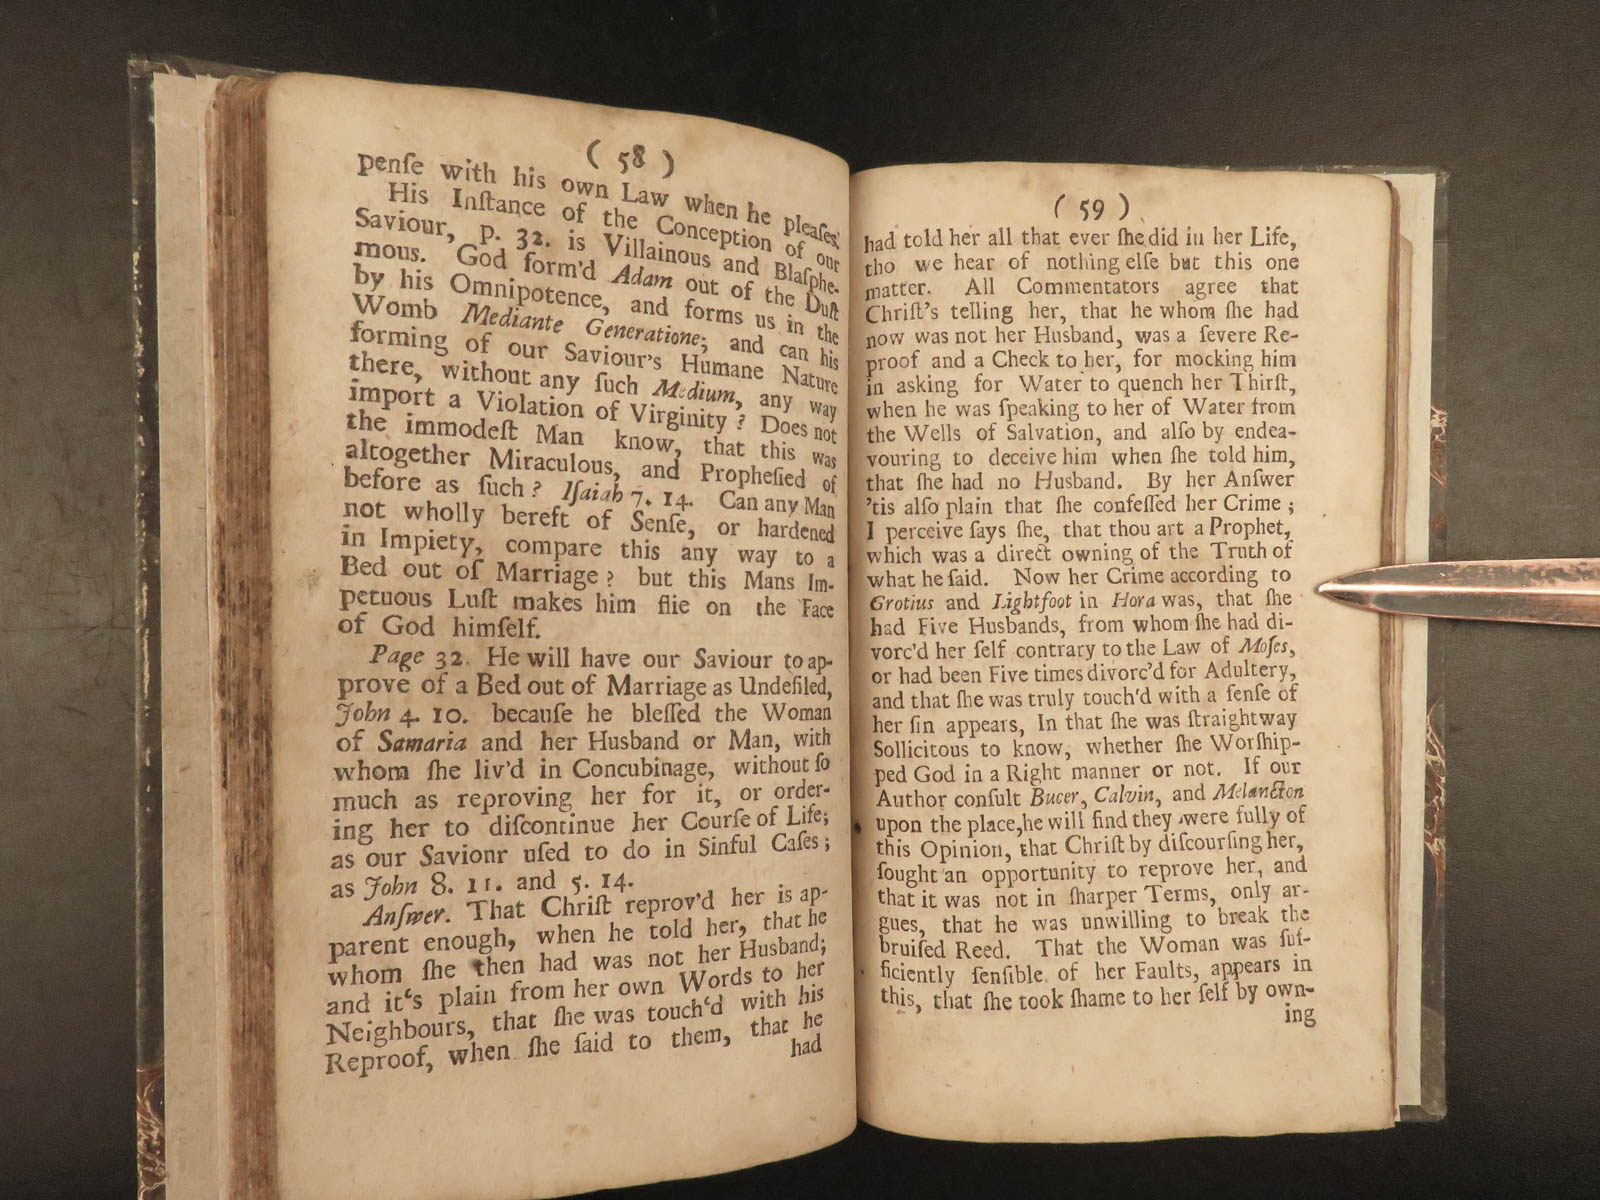 ( 58 )
penſe with his own Law when he pleaſes.
His Inſtance of the Conception of our
Saviour, p. 32. is Villainous and Blaſphe-
mous. God form'd Adam out of the Duſt
by his Omnipotence, and forms us in the
Womb Mediante Generatione; and can his
forming of our Saviour's Humane Nature
there, without any ſuch Medium, any way
import a Violation of Virginity? Does not
the immodeſt Man know, that this was
altogether Miraculous, and Propheſied of
before as ſuch? Iſaiah 7. 14. Can any Man
not wholly bereft of Senſe, or hardened
in Impiety, compare this any way to a
Bed out of Marriage? but this Mans Im-
petuous Luſt makes him flie on the Face
of God himſelf.
Page 32. He will have our Saviour to ap-
prove of a Bed out of Marriage as Undefiled,
John 4. 10. becauſe he bleſſed the Woman
of Samaria and her Husband or Man, with
whom ſhe liv'd in Concubinage, without ſo
much as reproving her for it, or order-
ing her to diſcontinue her Courſe of Life;
as our Savionr uſed to do in Sinful Caſes;
as John 8. 11. and 5. 14.
Anſwer. That Chriſt reprov'd her is ap-
parent enough, when he told her, that he
whom ſhe then had was not her Husband;
and it‘s plain from her own Words to her
Neighbours, that ſhe was touch‘d with his
Reproof, when ſhe ſaid to them, that he
had
( 59 )
had told her all that ever ſhe did in her Life,
tho we hear of nothing elſe but this one
matter. All Commentators agree that
Chriſt's telling her, that he whom ſhe had
now was not her Husband, was a ſevere Re-
proof and a Check to her, for mocking him
in asking for Water to quench her Thirſt,
when he was ſpeaking to her of Water from
the Wells of Salvation, and alſo by endea-
vouring to deceive him when ſhe told him,
that ſhe had no Husband. By her Anſwer
'tis alſo plain that ſhe confeſſed her Crime;
I perceive ſays ſhe, that thou art a Prophet,
which was a direct owning of the Truth of
what he ſaid. Now her Crime according to
Grotius and Lightfoot in Hora was, that ſhe
had Five Husbands, from whom ſhe had di-
vorc'd her ſelf contrary to the Law of Moſes,
or had been Five times divorc'd for Adultery,
and that ſhe was truly touch'd with a ſenſe of
her ſin appears, In that ſhe was ſtraightway
Sollicitous to know, whether ſhe Worſhip-
ped God in a Right manner or not. If our
Author conſult Bucer, Calvin, and Melancton
upon the place, he will find they were fully of
this Opinion, that Chriſt by diſcourſing her,
ſought an opportunity to reprove her, and
that it was not in ſharper Terms, only ar-
gues, that he was unwilling to break the
bruiſed Reed. That the Woman was ſuf-
ficiently ſenſible of her Faults, appears in
this, that ſhe took ſhame to her ſelf by own-
ing